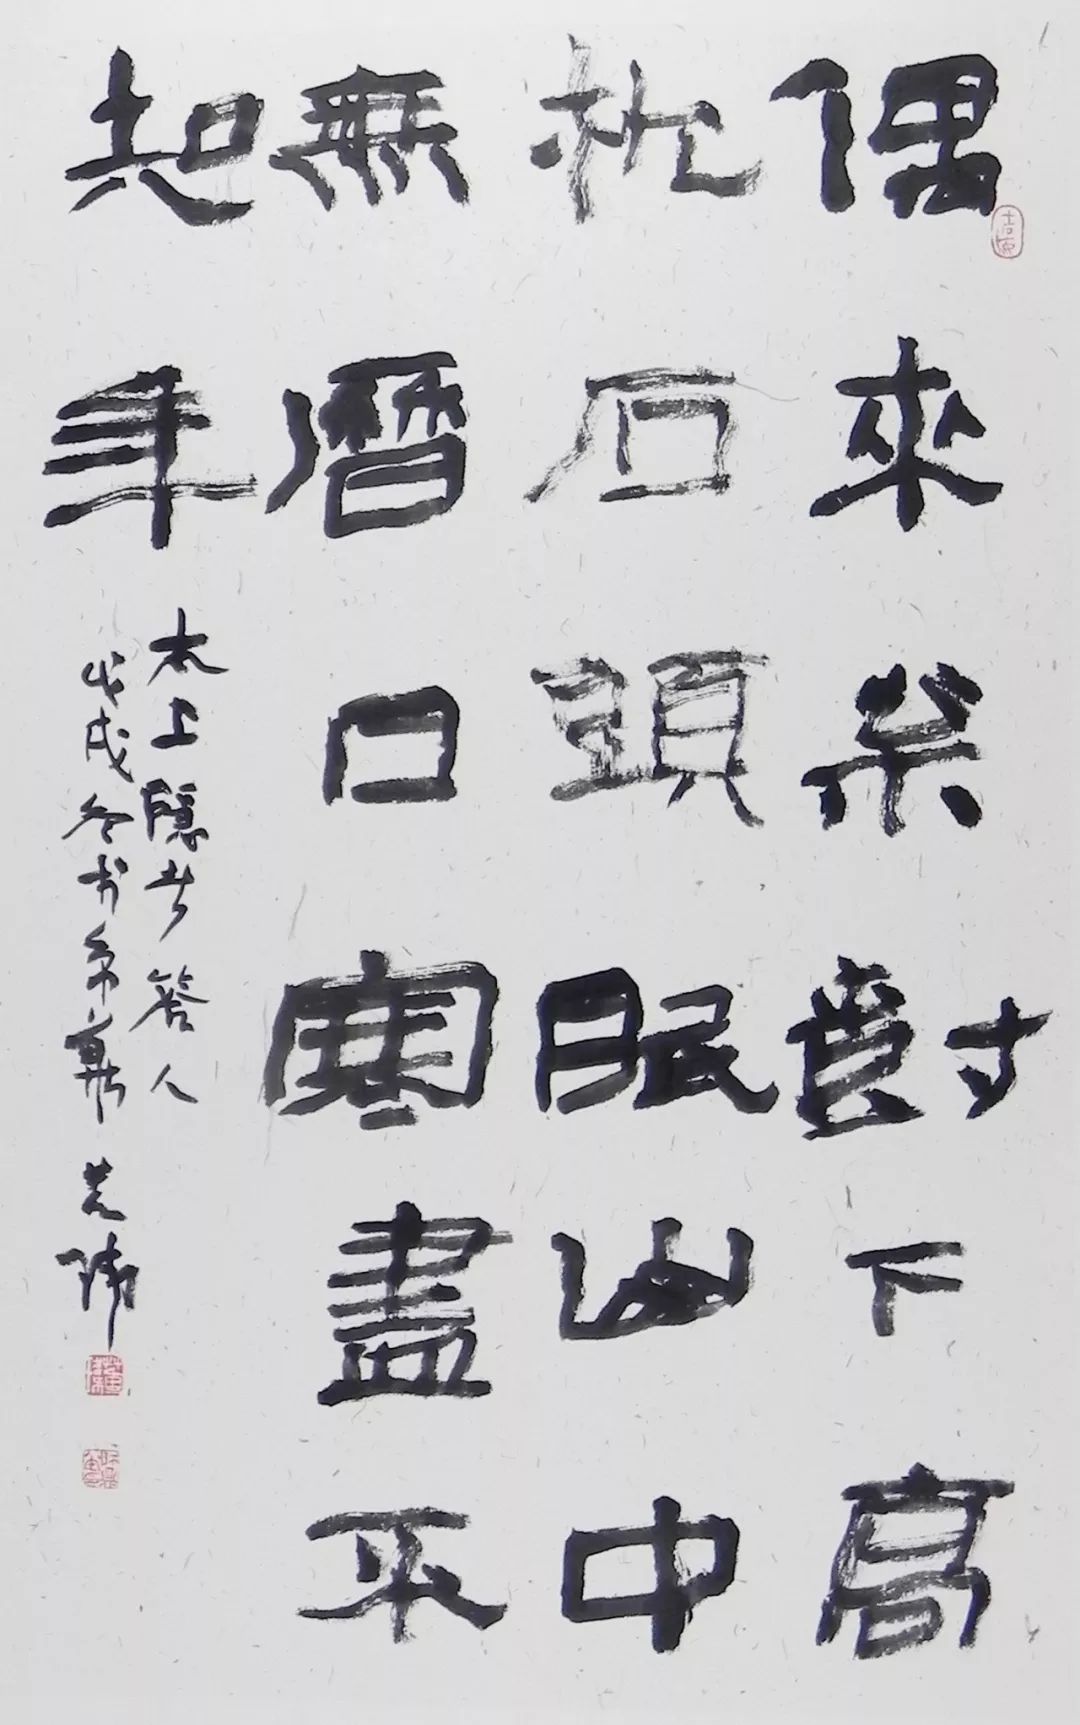 偶來松樹下高
枕石頭眠山中
無曆日寒盡不
知年
太上隱者答人
戊戌冬於京華